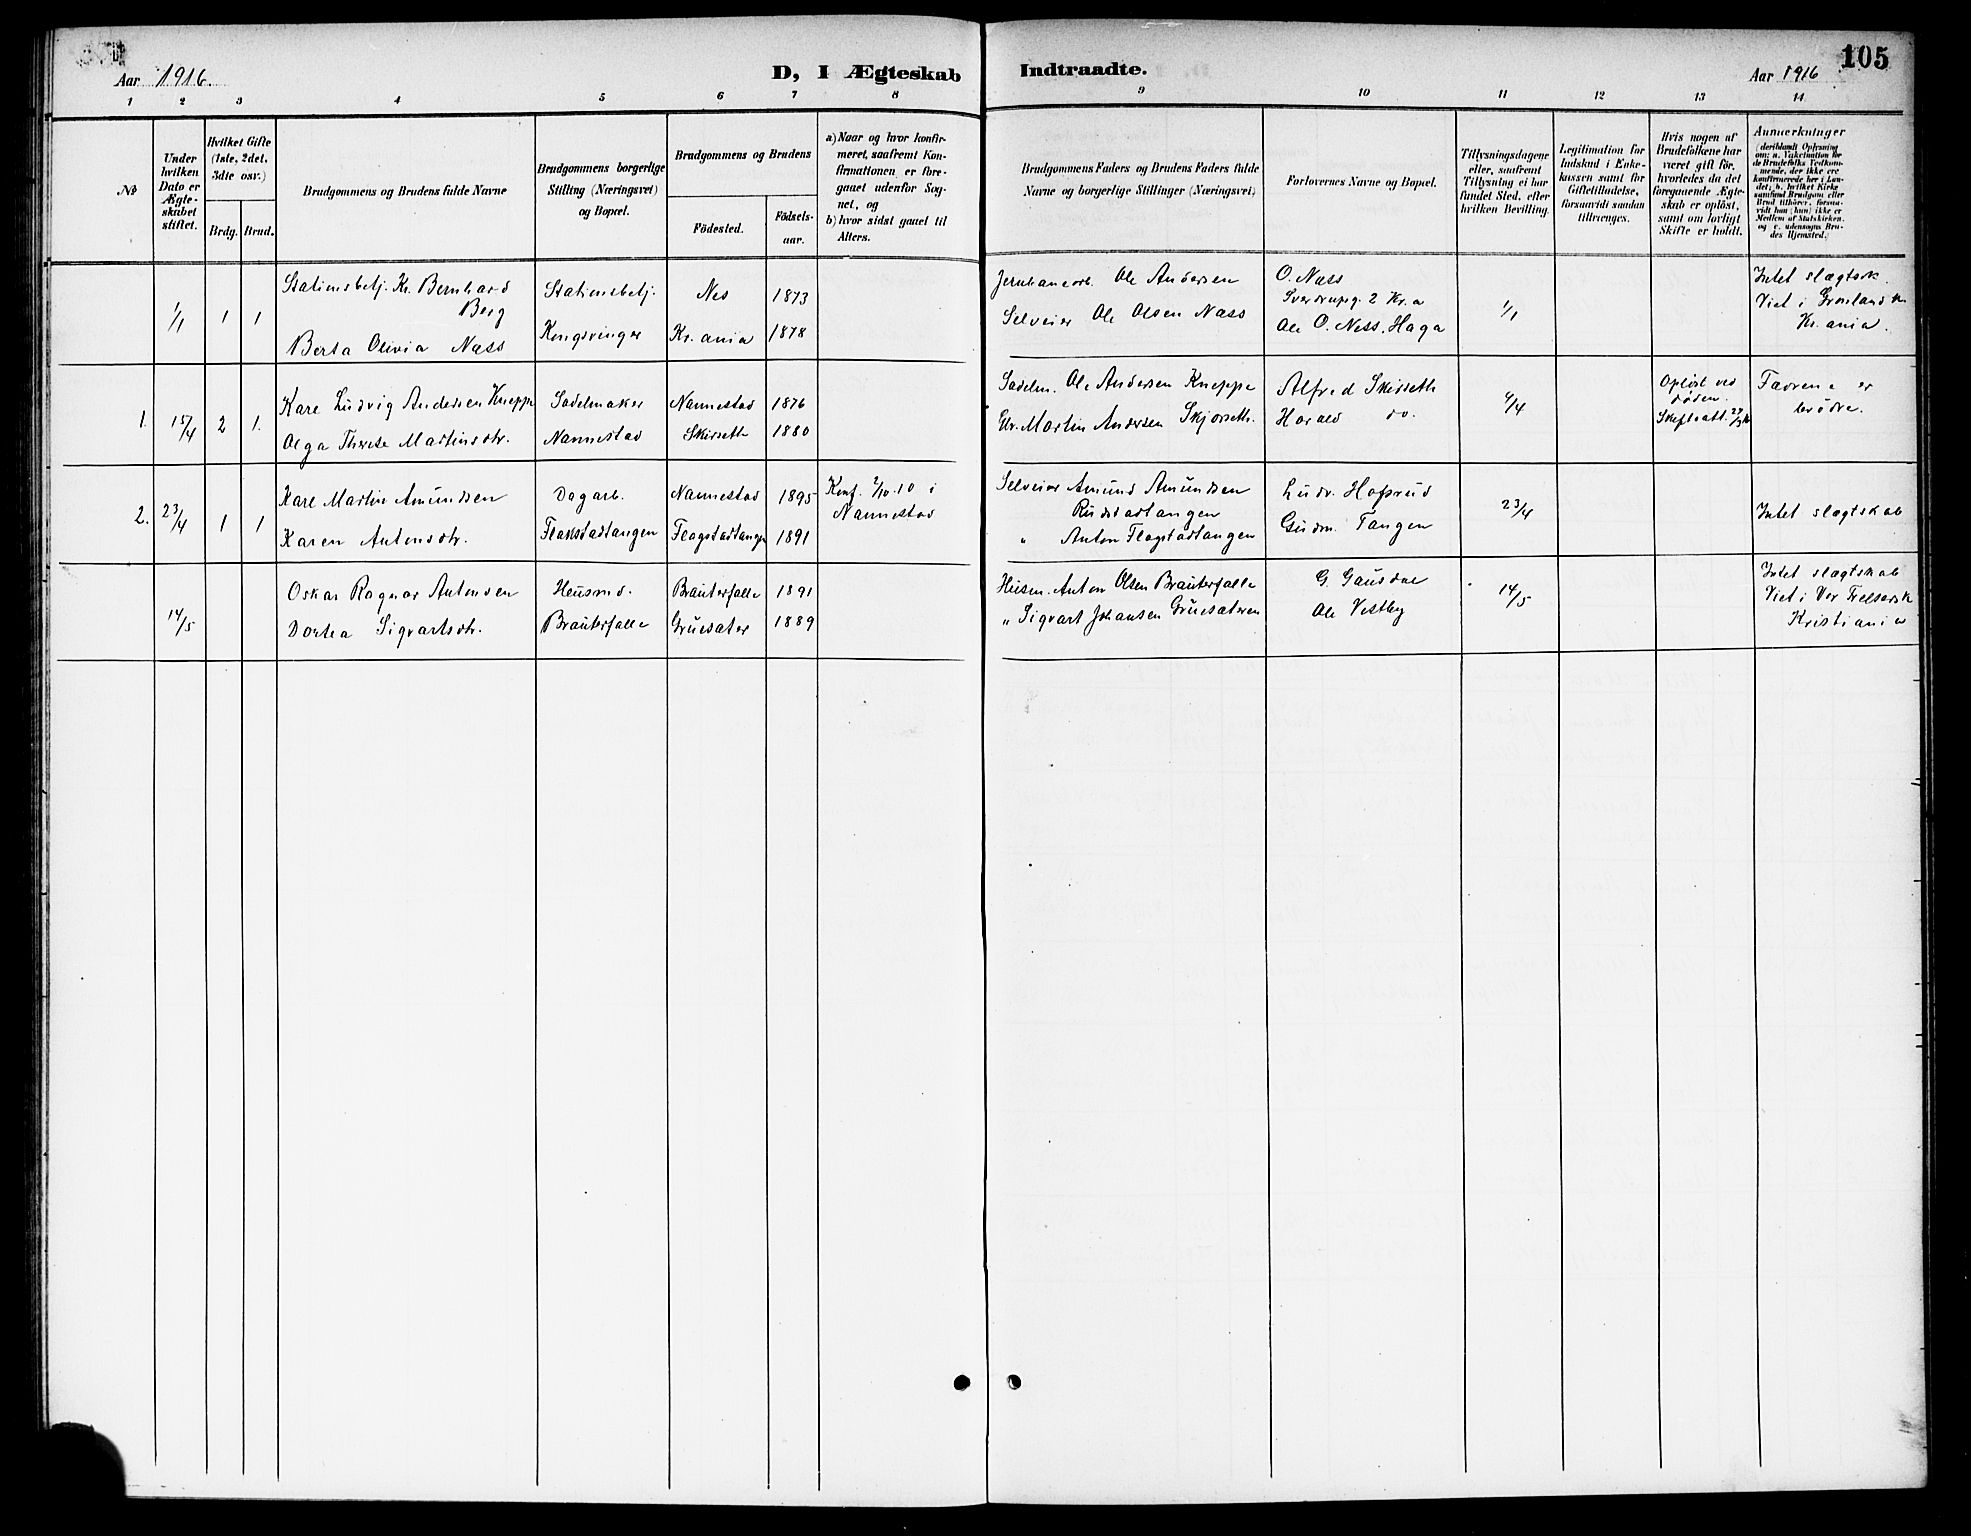 Aar 1916.
D, I Ægteskab
Indtraadte.
Aar 1916
105
1 2 3 4 5 6 7 8 9 10 11 12 13 14
No
Under
hvilken
Dato er
Ægte-
skabet
stiftet.
Hvilket Gifte
(1ste, 2det,
3die osv.)
Brdg. Brud.
Brudgommens og Brudens fulde Navne
Brudgommens borgerlige
Stilling (Næringsvei)
og Bopæl.
Brudgommens og Brudens
Födested.
Födsels-
aar.
a) Naar og hvor konfir-
meret, saafremt Kon-
firmationen er fore-
gaaet udenfor Sog-
net, og
b) hvor sidst gaaet til
Alters.
Brudgommens Faders og Brudens Faders fulde
Navne og borgerlige Stillinger (Næringsvei)
Forlovernes Navne og Bopæl.
Tillysningsdagene
eller, saafremt
Tillysning ei har
fundet Sted, efter
hvilken Bevilling.
Legitimation for
Indskud i Enke-
kassen samt for
Giftetilladelse,
forsaavidt saadan
tiltrænges.
Hvis nogen af
Brudefolkene har
været gift för,
hvorledes da det
foregaaende Ægte-
skab er oplöst,
samt om lovligt
Skifte er holdt.
Anmerkninger
(deriblandt Oplysning
om: a. Vakcination for
de Brudefolks Vedkom-
mende, der ikke ere
konfirmerede her i Lan-
det; b. hvilket Kirke-
samfund Brudgom eller
Brud tilhörer, forsaa-
vidt han (hun) ikke er
Medlem af Statskirken,
og c. udensogns Bru-
des Hjemsted.)
1/1 1 1
Stationsbetj. Kr. Bernhard
Berg
Berta Olivia Næss
Stationsbetj.
Kongsvinger
Nes 1873
Kr.ania 1878
Jernbanearb. Ole Andersen
Selveier Ole Olsen Næss
O. Næss
Sverdrupsg. 2 Kr.a
Ole O. Ness, Haga
1/1
Intet slægtsk.
Viet i Grønlands k
Kr.ania.
1. 15/4 2 1.
Karl Ludvig Andersen Kneppe
Olga Therese Martinsdtr.
Sadelmaker
Nannestad
Nannestad 1876
Skirseth 1880
Sadelm. Ole Andersen Kneppe
Gbr. Martin Andersen Skjørseth.
Alfred Skirseth
Harald do.
9/4
Opløst ved
døden.
Skifteatt.
Favrene er
brødre.
2. 23/4 1 1
Karl Martin Amundsen
Karen Antonsdtr.
Dagarb.
Flakstadtangen
Nannestad 1895
Flagstadtangen 1891
Konf. 2/10.10 i
Nannestad
Selveier Amund Amundsen
Rudstadtangen
" Anton Flagstadtangen
Ludv. Hofsrud
Gudm. Tangen
23/4
Intet slægtskab
14/5
Oskar Ragnar Antonsen
Dortea Sigvartsdtr.
Husmd.
Brauterfalle
Brauterfalle 1891
Gruesater 1889
Husm. Anton Olsen Brauterfalle
" Sigvart Johansen Gruesateren
G. Gausdal
Ole Vestby
14/5
Intet slægtskab
Viet i Vor Frelsersk
Kristiania